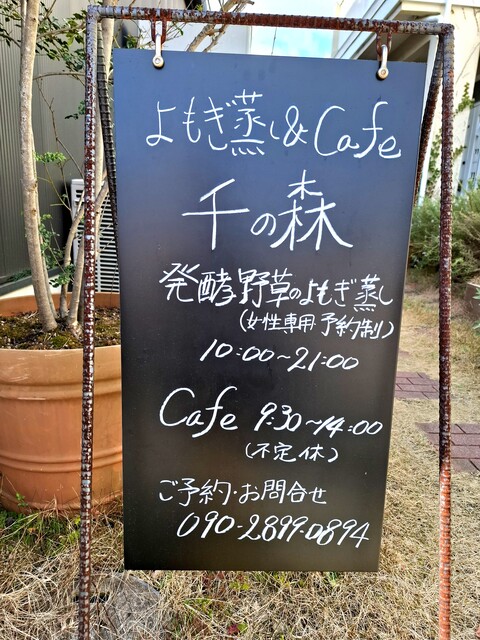 よもぎ蒸し&Cafe
千の森
発酵野草のよもぎ蒸し
(女性専用・予約制)
10:00~21:00
Cafe 9:30~14:00
(不定休)
ご予約・お問合せ
090-2899-0894